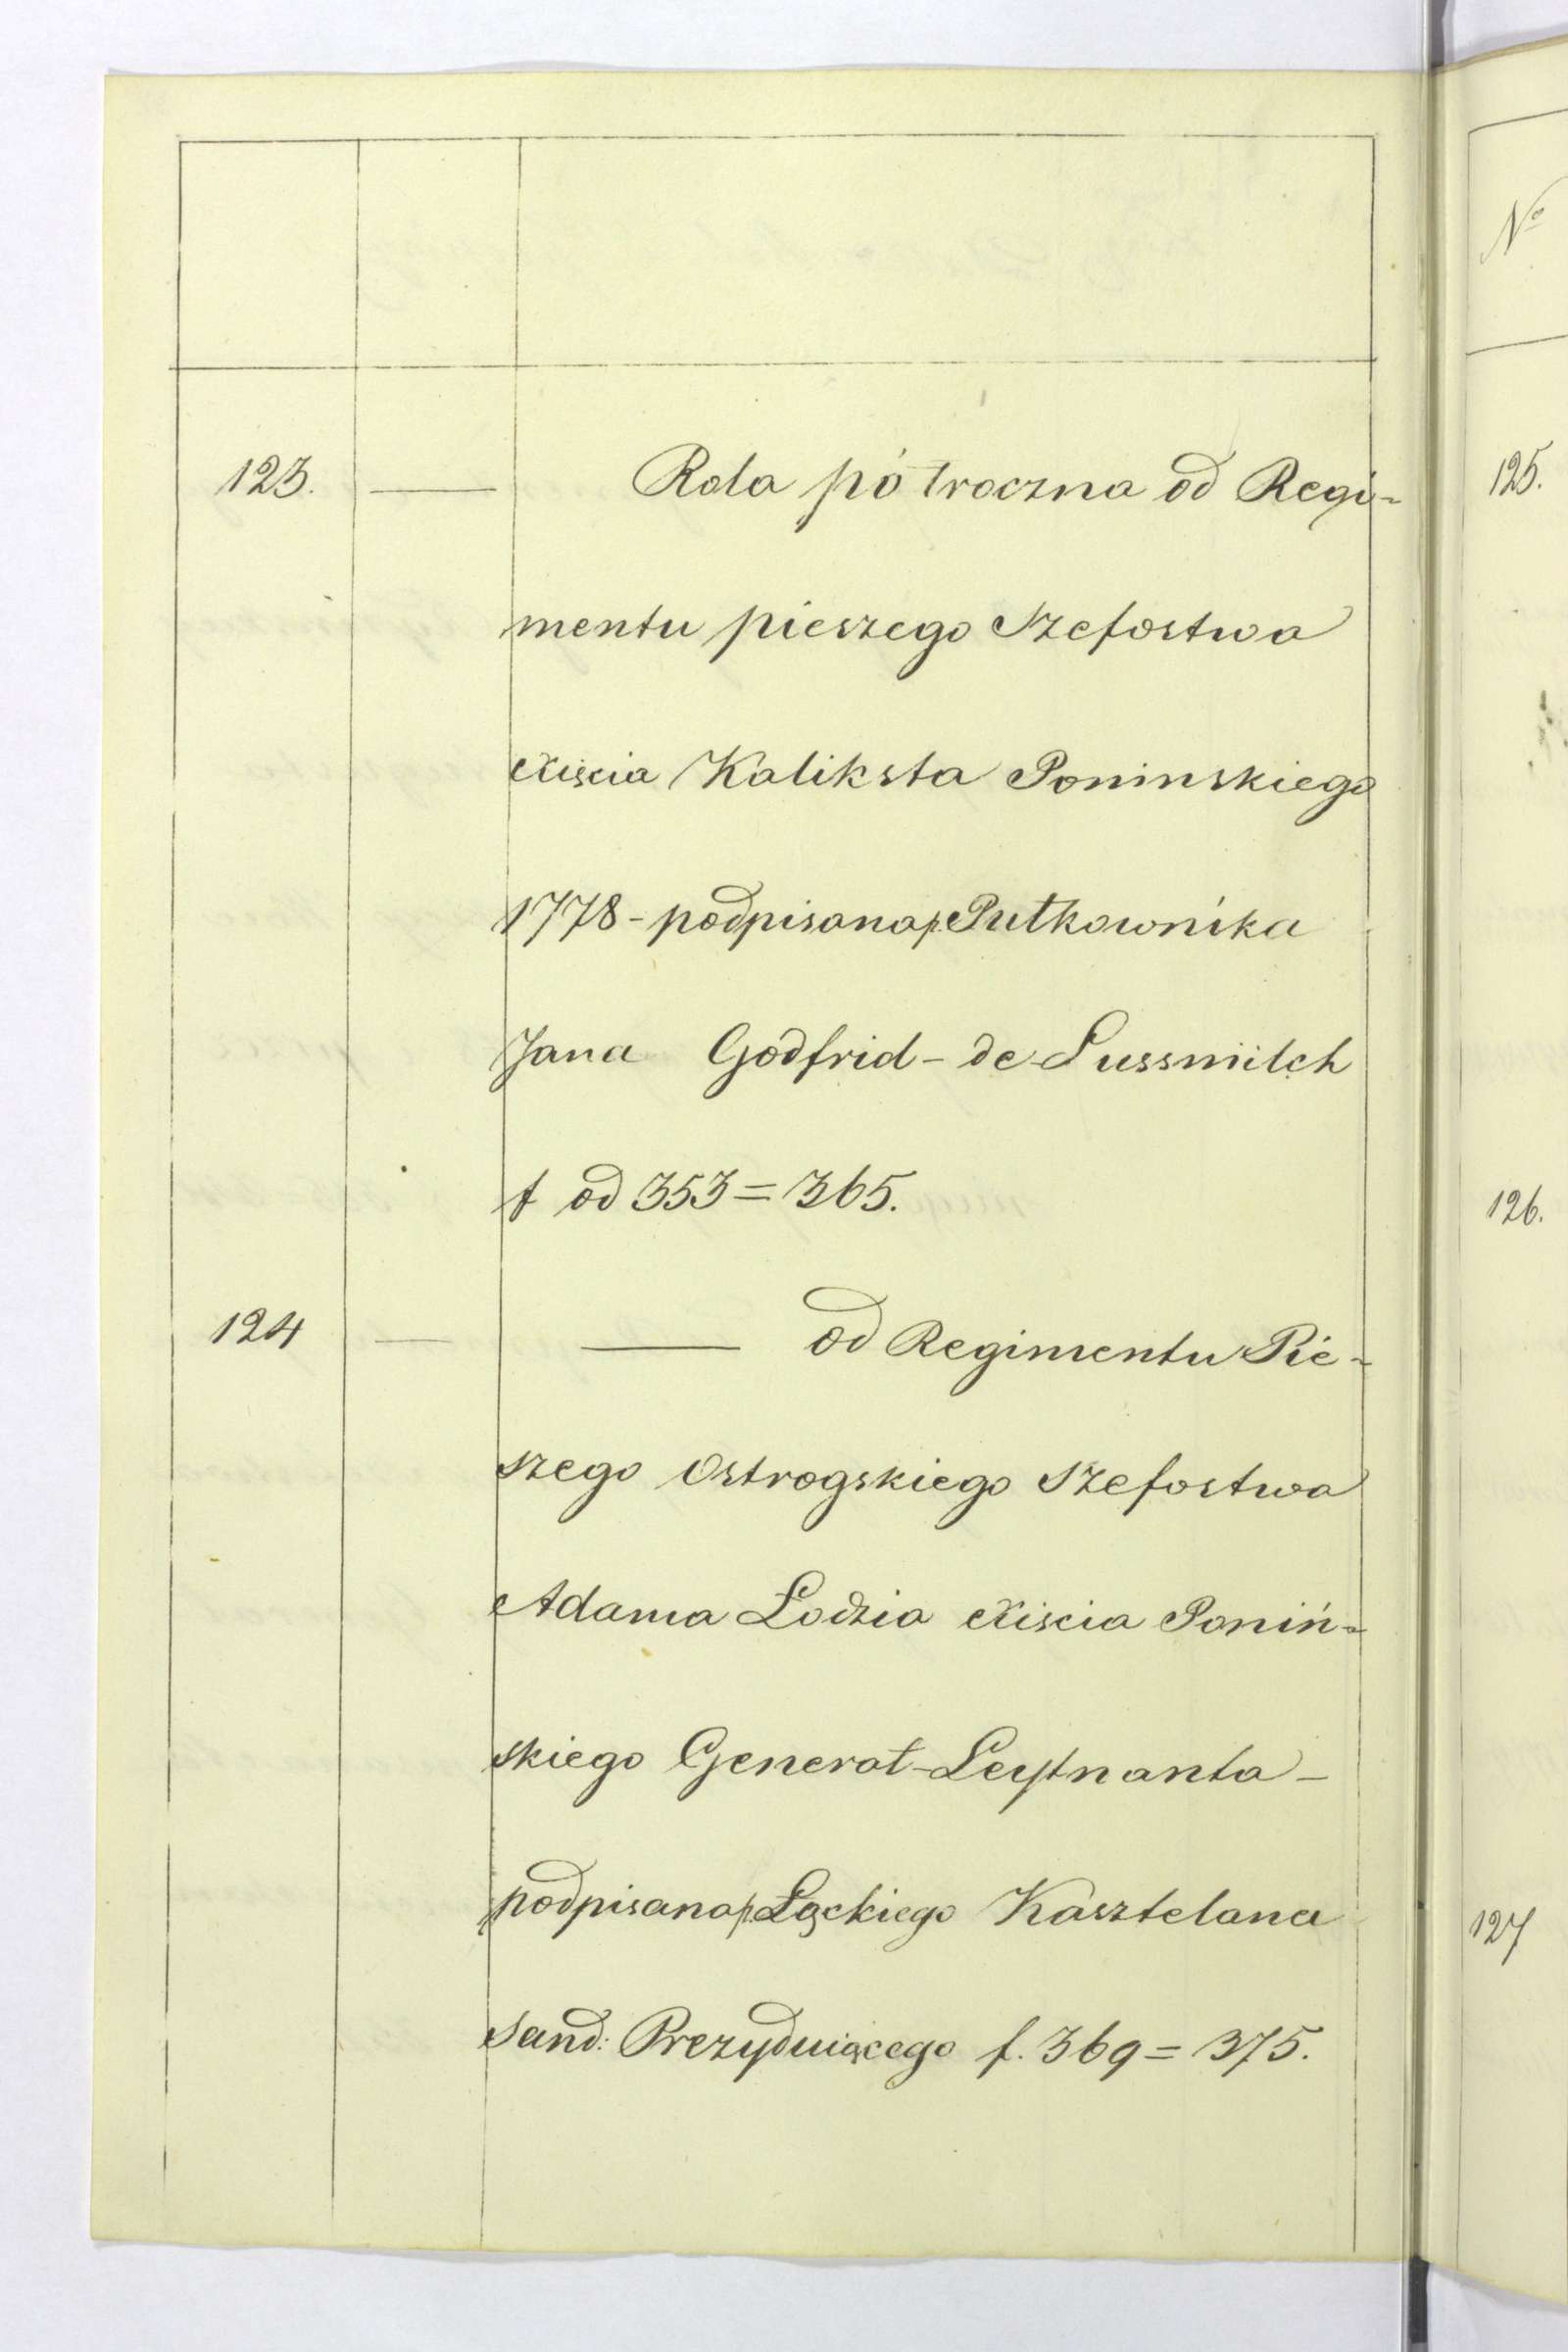 123. — Rola półroczna od Regi-
mentu pieszego Szefostwa
Xiscia Kaliksta Poninskiego
1778 - podpisana p. Pułkownika
Jana Godfrid - de Sussmilch
f od 353 = 365.
124 — — od Regimentu Pie-
szego Ostrogskiego Szefostwa
Adama Łodzia Xiscia Poniń-
skiego Generał-Leytnanta -
podpisana p. Łąckiego Kasztelana
Sand: Prezyduiącego f. 369 = 375.
No
125.
126.
127